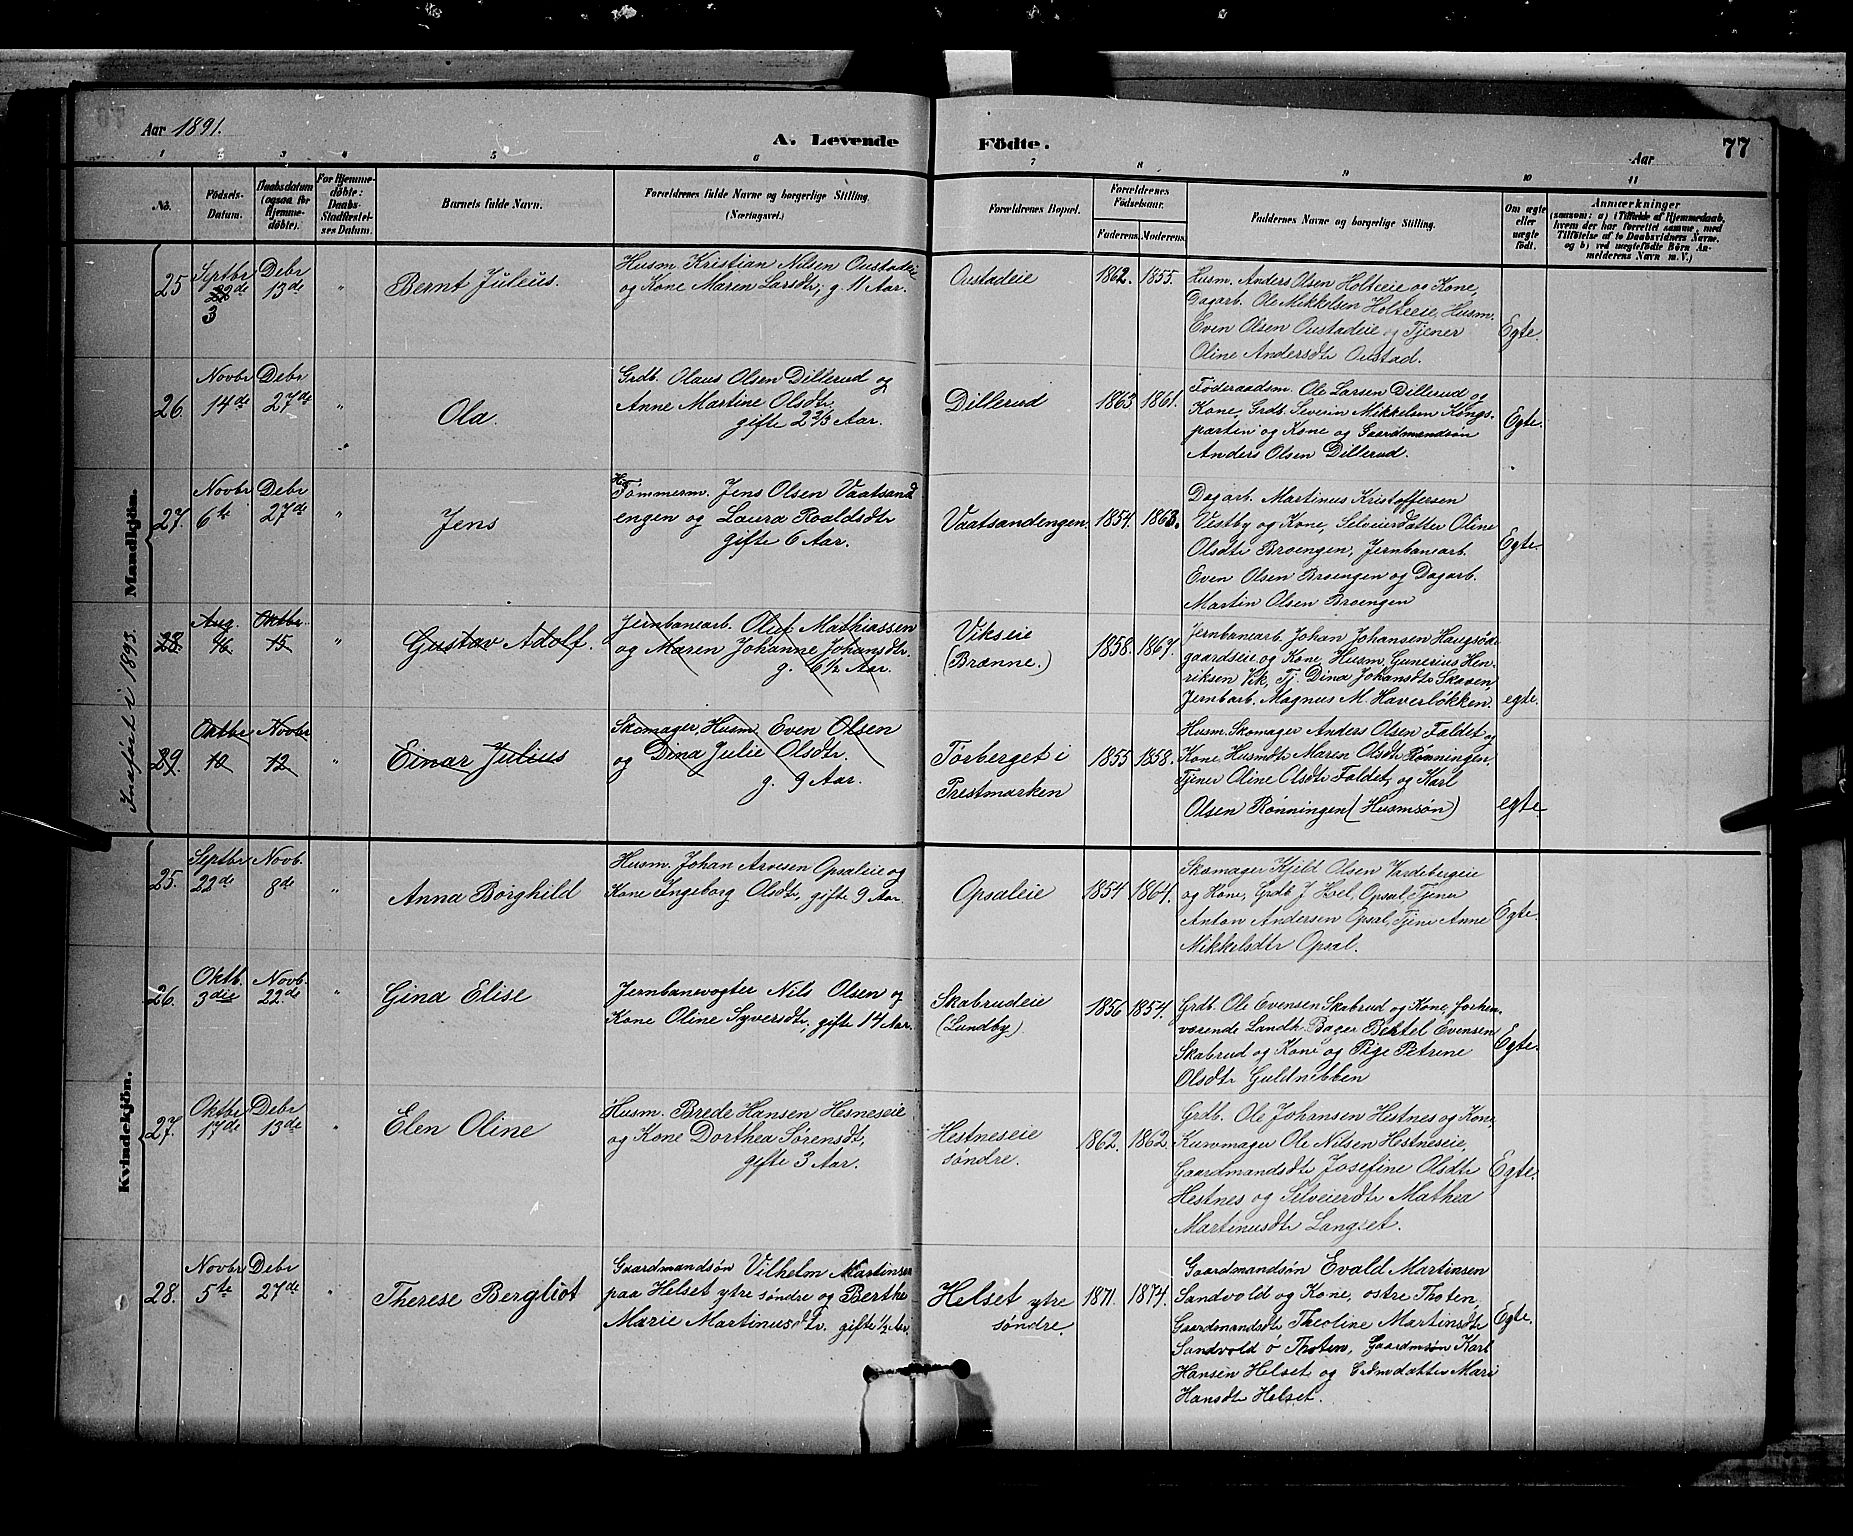 Aar 1891.
A. Levende Födte.
Aar
77
1 2 3 4 5 6 7 8 9 10 11
No.
Födsels-Datum.
Daabsdatum (ogsaa for Hjemme-döbte).
For Hjemme-döbte: Daabs-Stadfæstel-ses Datum.
Barnets fulde Navn.
Forældrenes fulde Navne og borgerlige Stilling. (Næringsvei.)
Forældrenes Bopæl.
Forældrenes Födselsaar.
Faderens. Moderens.
Faddernes Navne og borgerlige Stilling.
Om ægte eller uægte födt.
Anmærkninger
(saasom: a) i Tilfælde af Hjemmedaab,
hvem der har forrettet samme, med
Tilföielse af to Daabsvidners Navne.
og b) ved uægtefödte Börn An-
melderens Navn m. V.)
Mandkjön.
Indført i 1893.
25
Septbr 3
Debr 13de
"
Bernt Juleus.
Husm. Kristian Nilsen Oustadeie
og Kone Maren Larsdtr, g. 11 Aar.
Oustadeie
1862. 1855.
Husm. Anders Olsen Holteeie og Kone,
Dagarb. Ole Mikkelsen Holteeie, Husm.
Even Olsen Oustadeie og Tjener
Oline Andersdtr Oustad.
Egte.
26
Novbr 14de
Debr 27de
"
Ola.
Grdb. Olaus Olsen Dillerud og
Anne Martine Olsdtr
gifte 2 2/3 Aar.
Dillerud
1863 1861.
Føderaadsm. Ole Larsen Dillerud og
Kone, Grdb. Severin Mikkelsen Kongs-
parten og Kone og Gaardmandsøn
Anders Olsen Dillerud.
Egte.
27.
Novbr 6te
Debr 27de
"
Jens
Tømmerm. Jens Olsen Vaatsand
engen og Laura Roaldsdtr
gifte 6 Aar.
Vaatsandengen.
1854. 1863.
Dagarb. Martinus Kristoffersen
Vestby og Kone, Selveierdatter Oline
Olsdtr Broengen, Jernbanearb.
Even Olsen Broengen og Dagarb.
Martin Olsen Broengen
Egte.
28.
Aug.
Oktbr. 15
"
Gustav Adolf.
Jernbanearb. Oluf Mathiassen
og Maren Johanne Johansdtr.
g. 6 1/2 Aar.
Vikseie
(Brænne.)
1858. 1867.
Jernbanearb. Johan Johansen Haugsø-
gaardseie og Kone, Husm. Gunerius Hen-
riksen Vik, Tj. Dina Johansdtr Skaven,
Jernbarb. Magnus M. Haverløkken.
egte.
29.
Oktbr 10
Novbr 12
"
Einar Julius
Skomager, Husm. Even Olsen
og Dina Julie Olsdtr.
g. 9 Aar.
Tørberget i
Prestmarken
1855 1858.
Husm. Skomager Anders Olsen Faldet og
Kone, Husmdt. Maren Olsdtr Rønningen,
Tjener Oline Olsdtr Faldet og Karl
Olsen Rønningen (Husmsøn)
egte.
Kvindekjön.
25.
Septbr 22de
Novb. 8de
"
Anna Borghild
Husm. Johan Arvesen Opsaleie og
Kone Ingeborg Olsdtr, gifte 9 Aar.
Opsaleie
1854 1864.
Skomager Kjeld Olsen Vardebergeie
og Kone, Grdb J Hoel, Opsal, Tjener
Anton Andersen Opsal, Tjener Anne
Mikkelsdtr Opsal.
Egte.
26.
Oktb. 3die
Novb. 22de
"
Gina Elise
Jernbanevogter Nils Olsen og
Kone Oline Syversdtr, gifte 14 Aar.
Skabrudeie
(Lundby).
1856 1854.
Grdb. Ole Evensen Skabrud og Kone, forhen-
værende Landh. Bager Bertel Evensen
Skabrud og Kone og Pige Petrine
Olsdtr Guldnebben
Egte.
27.
Oktbr 17de
Debr 13de
"
Elen Oline
Husm. Brede Hansen Hesneseie
og Kone Dorthea Sørensdtr,
gifte 3 Aar.
Hestneseie
søndre.
1862. 1862.
Grdb. Ole Johansen Hestnes og Kone,
Kurvmager Ole Nilsen Hestneseie,
Gaardmandsdtr Josefine Olsdtr
Hestnes og Selveierdtr Mathea
Martinusdtr Langset.
Egte.
28.
Novbr 5te
Debr 27de
"
Therese Bergliot
Gaardmandsøn Vilhelm Martinsen
paa Helset ytre søndre og Berthe
Marie Martinusdtr. gifte 1/2 Aar.
Helset ytre
søndre.
1871. 1874.
Gaardmandsøn Evald Martinsen
Sandvold og Kone, østre Thoten,
Gaardmandsdtr Theoline Martinsdtr
Sandvold ø Thoten, Gaardmsøn Karl
Hansen Helset og Grdmdatter Mari
Hansdtr Helset.
Egte.